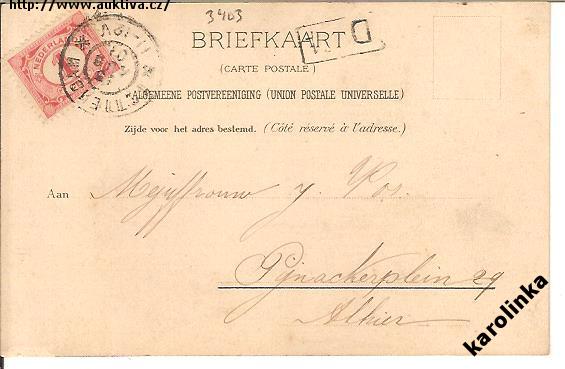 http://www.auktiva.cz/
3403
NEDERLAND
BRIEFKAART
D
(CARTE POSTALE)
ALGEMEENE POSTVEREENIGING (UNION POSTALE UNIVERSELLE)
Zijde voor het adres bestemd. (Côté réservé à l'adresse.)
Aan Mejuffrouw J. Vos.
Pijnackerplein 29
Alhier
karolinka